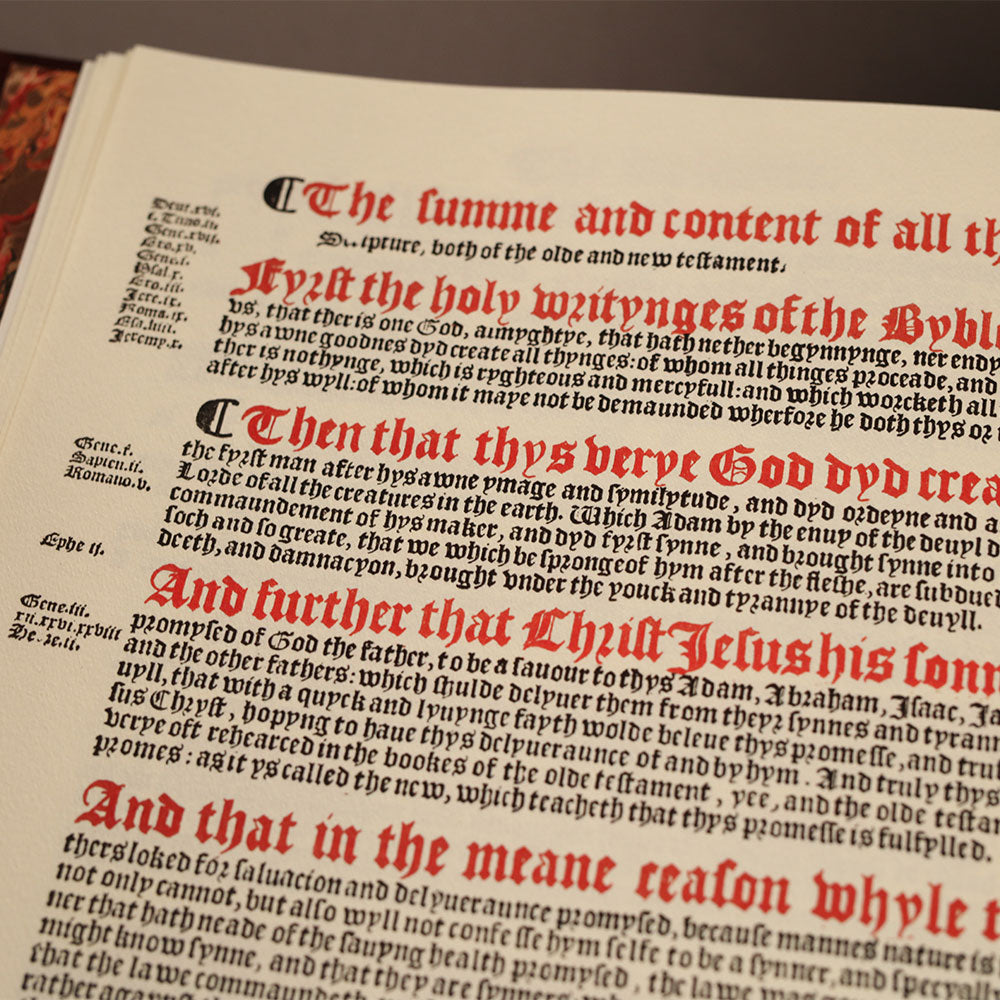 Deut.xvi.
i. Timo.ii.
Gene.xvii.
Ero.xv.
Gene.i.
Psal.x.
Ero.iii.
Jere.ix.
Roma.ix.
Jeremy.x.
¶ The ſumme and content of all th
Scripture, both of the olde and new teſtament.
Fyrſt the holy writynges of the Bybl
vs, that ther is one God, almyghtye, that hath nether begynnynge, ner endy
hys awne goodnes dyd create all thynges: of whom all thinges proceade, and
ther is nothynge, which is ryghteous and mercyfull: and which worcketh all
after hys wyll: of whom it maye not be demaunded wherfore he doth thys or
¶ Then that thys verye God dyd crea
Gene.i.
Sapien.ii.
Romano.v.
the fyrſt man after hys awne ymage and ſymilytude, and dyd ordeyne and a
Lorde of all the creatures in the earth. Which Adam by the enuy of the deuyl d
commaundement of hys maker, and dyd fyrſt ſynne, and brought ſynne into
ſoch and ſo greate, that we which be ſpronge of hym after the fleſhe, are ſubduet
Ephe ij.
deeth, and damnacyon, brought vnder the youck and tyrannye of the deuyll.
And further that Chriſt Jeſus his ſonn
Gene.iii.
xii.xxvi.xxviii
promyſed of God the father, to be a ſauour to thys Adam, Abraham, Iſaac, Ja
and the other fathers: which ſhulde delyuer them from theyr ſynnes and tyrann
uyll, that with a quyck and lyuynge fayth wolde beleue thys promeſſe, and truſ
ſus Chryſt, hopyng to haue thys delyueraunce of and by hym. And truly thys
verye oft rehearced in the bookes of the olde teſtament, yee, and the olde teſtam
promes: as it ys called the new, which teacheth that thys promeſſe is fulfylled.
And that in the meane ceaſon whyle
thers loked for ſaluacion and delyueraunce promyſed, becauſe mannes nature is
not only cannot, but alſo wyll not confeſſe hym ſelfe to be a ſynner, and ſpecyally
ner that hath neade of the ſauyng health promyſed, the lawe was
might know ſynne, and that they are ſynners:
that the lawe commaundeth
rather